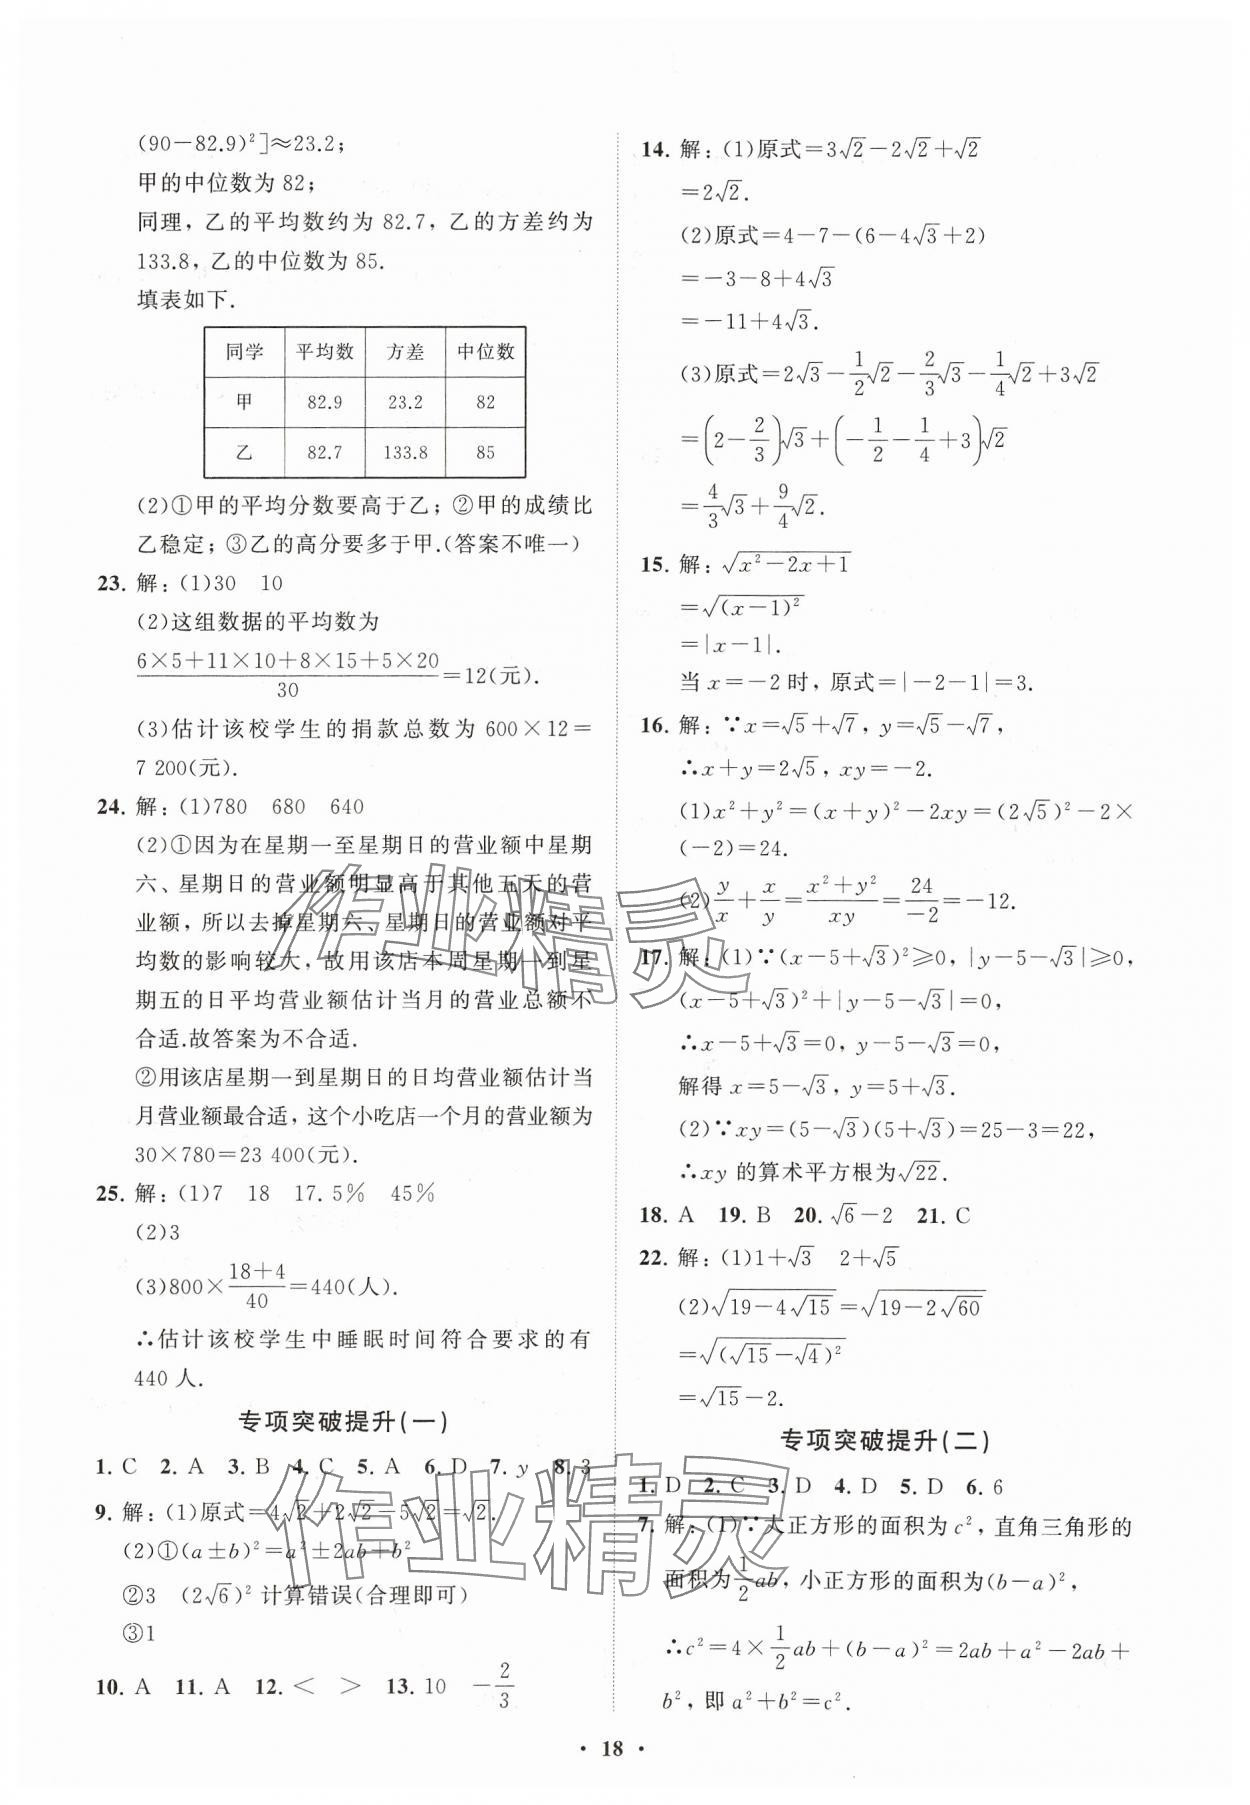 (90-82.9)²]≈23.2;
甲的中位数为 82;
同理,乙的平均数约为 82.7,乙的方差约为
133.8,乙的中位数为 85.
填表如下.
同学 平均数 方差 中位数
甲 82.9 23.2 82
乙 82.7 133.8 85
(2)①甲的平均分数要高于乙;②甲的成绩比
乙稳定;③乙的高分要多于甲.(答案不唯一)
23. 解:(1)30 10
(2)这组数据的平均数为
(6×5+11×10+8×15+5×20)/30=12(元).
(3)估计该校学生的捐款总数为 600×12=
7 200(元).
24. 解:(1)780 680 640
(2)①因为在星期一至星期日的营业额中星期
六、星期日的营业额明显高于其他五天的营
业额,所以去掉星期六、星期日的营业额对平
均数的影响较大,故用该店本周星期一到星
期五的日平均营业额估计当月的营业总额不
合适.故答案为不合适.
②用该店星期一到星期日的日均营业额估计当
月营业额最合适,这个小吃店一个月的营业额为
30×780=23 400(元).
25. 解:(1)7 18 17.5% 45%
(2)3
(3)800×(18+4)/40=440(人).
∴估计该校学生中睡眠时间符合要求的有
440 人.
专项突破提升(一)
1. C 2. A 3. B 4. C 5. A 6. D 7. y 8. 3
9. 解:(1)原式=4√2+2√2-5√2=√2.
(2)①(a±b)²=a²±2ab+b²
②3 (2√6)² 计算错误(合理即可)
③1
10. A 11. A 12. < > 13. 10 -2/3
14. 解:(1)原式=3√2-2√2+√2
=2√2.
(2)原式=4-7-(6-4√3+2)
=-3-8+4√3
=-11+4√3.
(3)原式=2√3-1/2√2-2/3√3-1/4√2+3√2
=(2-2/3)√3+(-1/2-1/4+3)√2
=4/3√3+9/4√2.
15. 解:√(x²-2x+1)
=√((x-1)²)
=|x-1|.
当 x=-2 时,原式=|-2-1|=3.
16. 解:∵x=√5+√7,y=√5-√7,
∴x+y=2√5,xy=-2.
(1)x²+y²=(x+y)²-2xy=(2√5)²-2×
(-2)=24.
(2)y/x+x/y=(x²+y²)/xy=24/-2=-12.
17. 解:(1)∵(x-5+√3)²≥0,|y-5-√3|≥0,
(x-5+√3)²+|y-5-√3|=0,
∴x-5+√3=0,y-5-√3=0,
解得 x=5-√3,y=5+√3.
(2)∵xy=(5-√3)(5+√3)=25-3=22,
∴xy 的算术平方根为√22.
18. A 19. B 20. √6-2 21. C
22. 解:(1)1+√3 2+√5
(2)√(19-4√15)=√(19-2√60)
=√((√15-√4)²)
=√15-2.
专项突破提升(二)
1. D 2. C 3. C 4. D 5. D 6. 6
7. 解:(1)∵大正方形的面积为 c²,直角三角形的
面积为1/2ab,小正方形的面积为(b-a)²,
∴c²=4×1/2ab+(b-a)²=2ab+a²-2ab+
b²,即 a²+b²=c².
· 18 ·
作业精灵
作业精灵